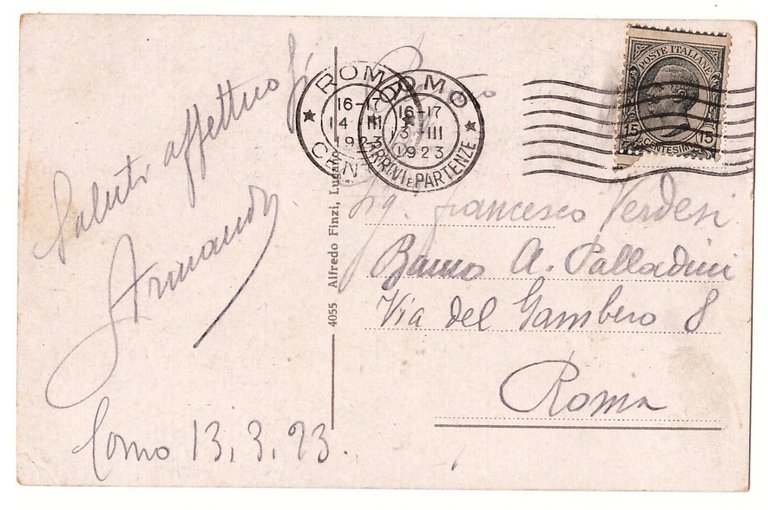 Saluti affettuosi
Armando
Como 13.3.23.
4055 Alfredo Finzi, Lugano
ROMA
16-17
14 III
1923
COMO
16-17
13 III
1923
ARRIVI E PARTENZE
POSTE ITALIANE
15 15
CENTESIMI
Sig. Francesco Verdesi
Banco A. Palladini
Via del Gambero 8
Roma